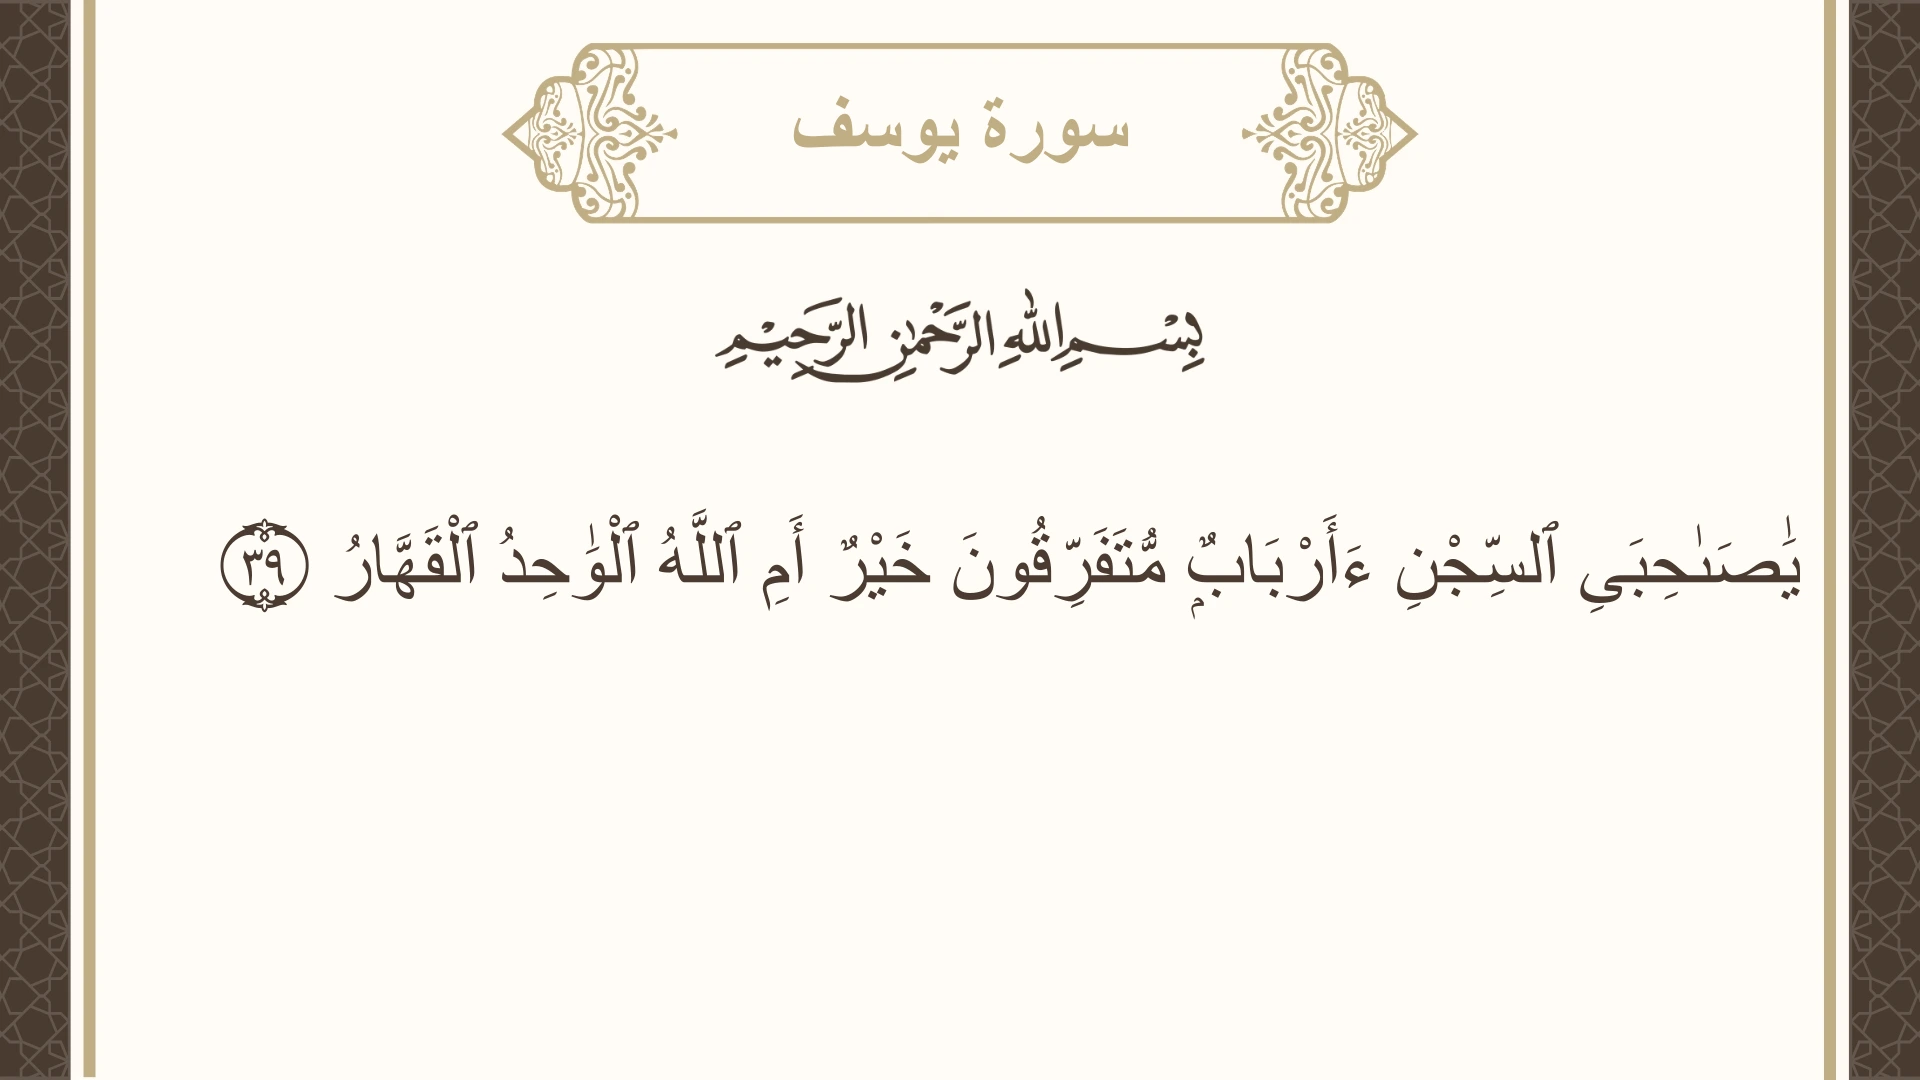 سورة يوسف
بِسْمِ اللهِ الرَّحْمٰنِ الرَّحِيْمِ
يَٰصَىٰحِبَىِ ٱلسِّجْنِ ءَأَرْبَابٌۭ مُّتَفَرِّقُونَ خَيْرٌ أَمِ ٱللَّهُ ٱلْوَٰحِدُ ٱلْقَهَّارُ ٣٩